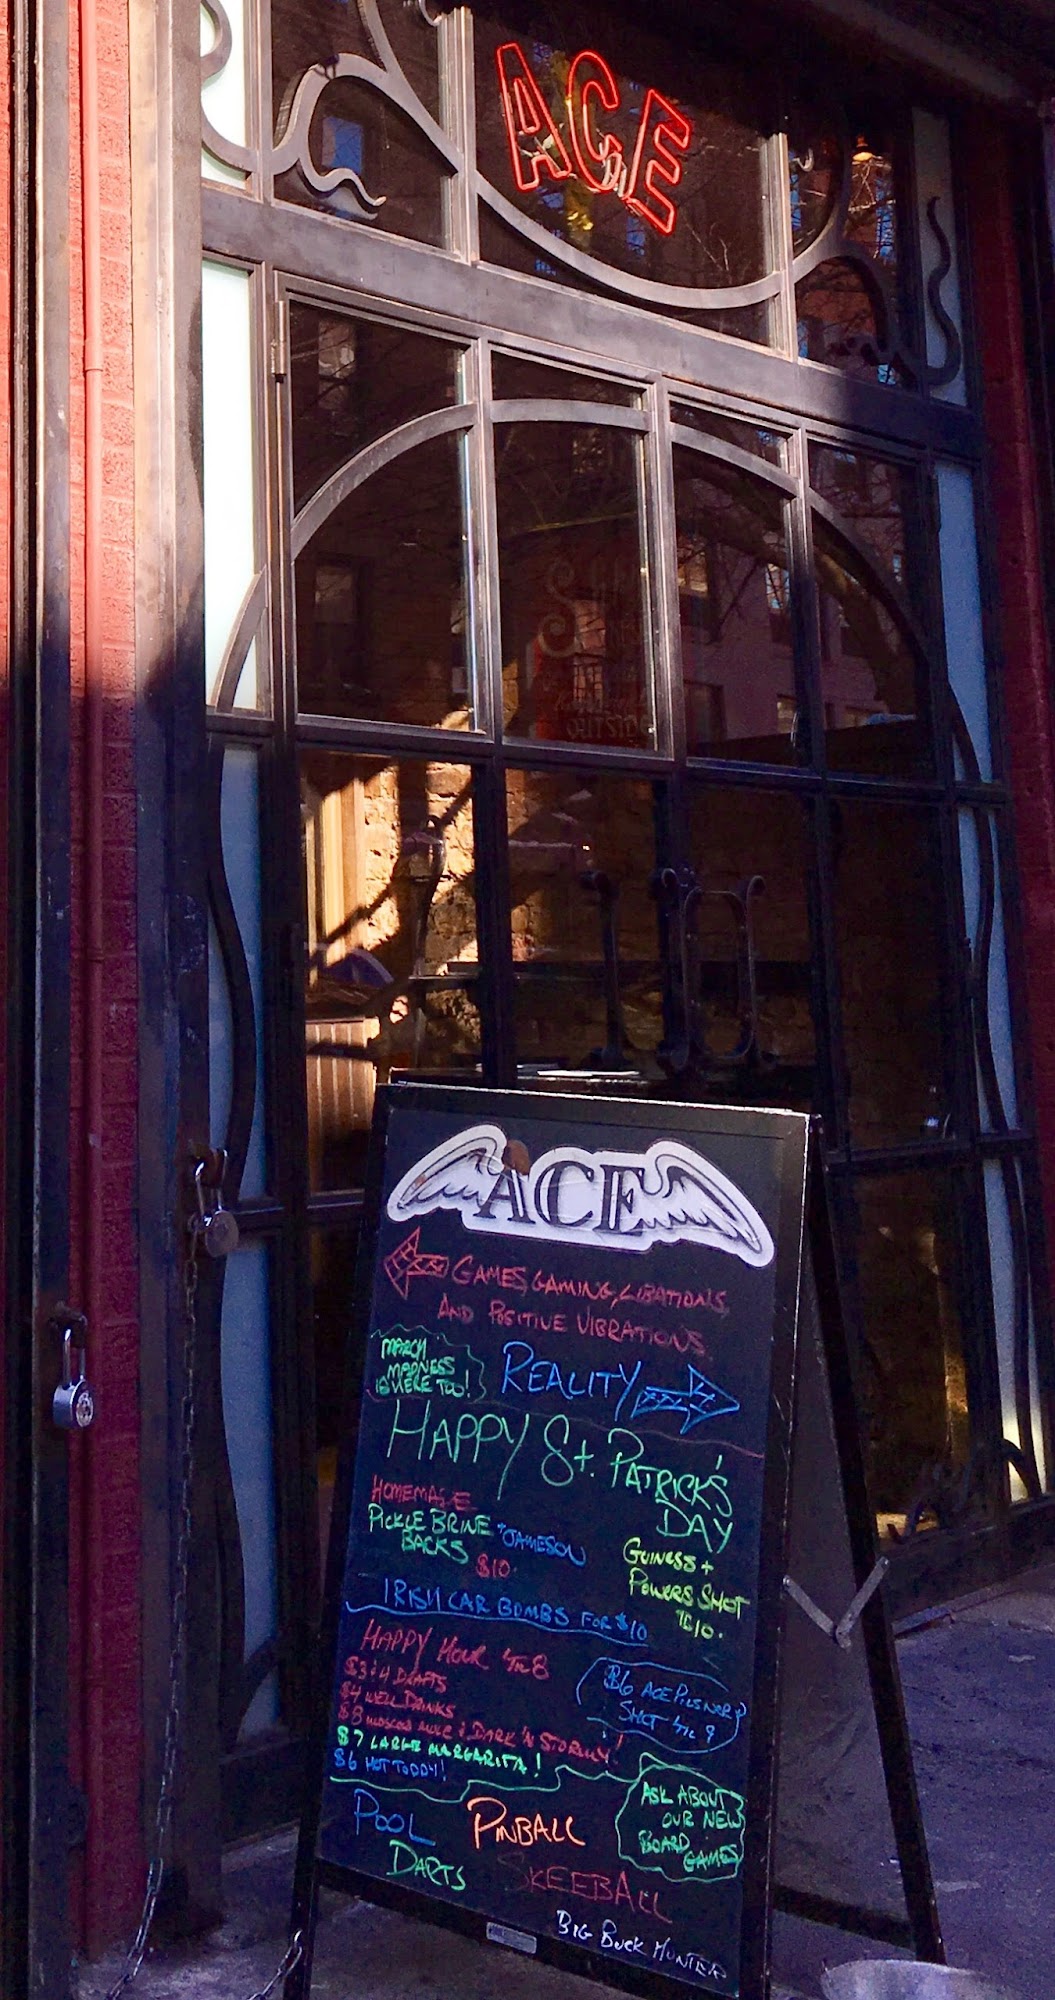 ACE
OUTSIDE
ACE
GAMES, GAMING, LIBATIONS,
AND POSITIVE VIBRATIONS.
MARCH
MADNESS
IS HERE TOO!
REALITY
HAPPY St. PATRICK'S
DAY
HOMEMADE
PICKLE BRINE + JAMESON
BACKS $10.
GUINESS +
POWERS SHOT
$10.
IRISH CAR BOMBS FOR $10
HAPPY HOUR 'TIL 8
$3 & 4 DRAFTS
$4 WELL DRINKS
$8 MOSCOW MULE & DARK 'N STORMY!
$7 LARGE MARGARITA!
$6 HOT TODDY!
$6 ACE PILSNER &
SHOT 'TIL 9
ASK ABOUT
OUR NEW
BOARD
GAMES
POOL PINBALL
DARTS SKEEBALL
BIG BUCK HUNTER